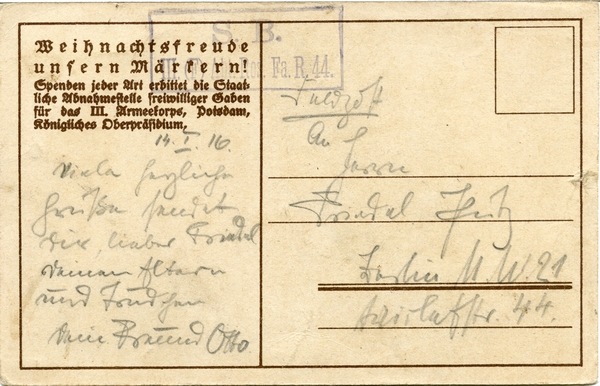 Weihnachtsfreude
unsern Märkern!
Spenden jeder Art erbittet die Staat-
liche Abnahmestelle freiwilliger Gaben
für das III. Armeekorps, Potsdam,
Königliches Oberpräsidium.
S. B.
Fa. R. 44.
14. I. 16.
Viele herzliche
Grüße sendet
dir, lieber Friedel
deinen Eltern
und Trudchen
dein Freund Otto
Feldpost
An
Herrn
Friedel
Berlin N.W. 21
44.